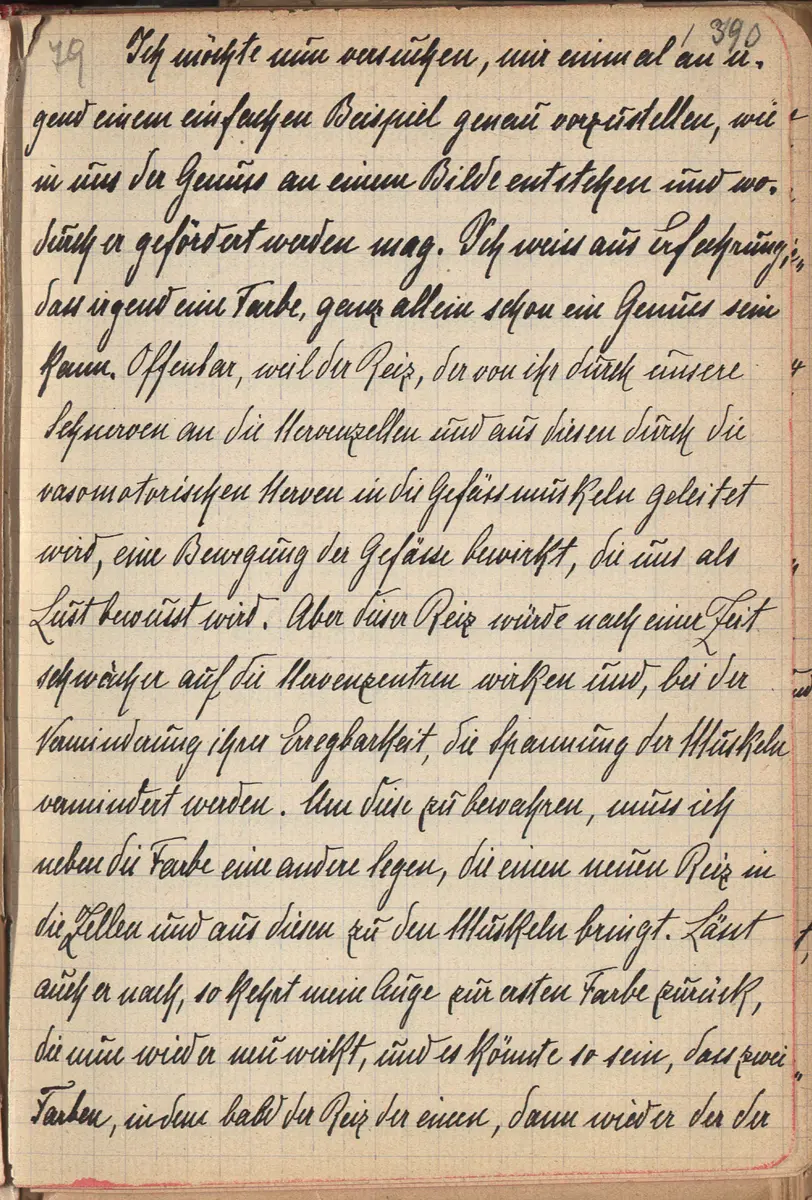 79 390
Ich möchte nun versuchen, mir einmal an ir-
gend einem einfachen Beispiel genau vorzustellen, wie
in uns der Genuss an einem Bilde entstehen und wo-
durch er gefördert werden mag. Ich weiss aus Erfahrung,
dass irgend eine Farbe, ganz allein schon ein Genuss sein
kann. Offenbar, weil der Reiz, der von ihr durch unsere
Sehnerven an die Nervenzellen und aus diesen durch die
vasomotorischen Nerven in die Gefässmuskeln geleitet
wird, eine Bewegung der Gefässe bewirkt, die uns als
Lust bewusst wird. Aber dieser Reiz würde nach einer Zeit
schwächer auf die Nervenzentren wirken und, bei der
Verminderung ihrer Erregbarkeit, die Spannung der Muskeln
vermindert werden. Um diese zu bewahren, muss ich
neben die Farbe eine andere legen, die einen neuen Reiz in
die Zellen und aus diesen zu den Muskeln bringt. Lässt
auch er nach, so kehrt mein Auge zur ersten Farbe zurück,
die nun wieder neu wirkt, und es könnte so sein, dass zwei
Farben, indem bald der Reiz der einen, dann wieder der der